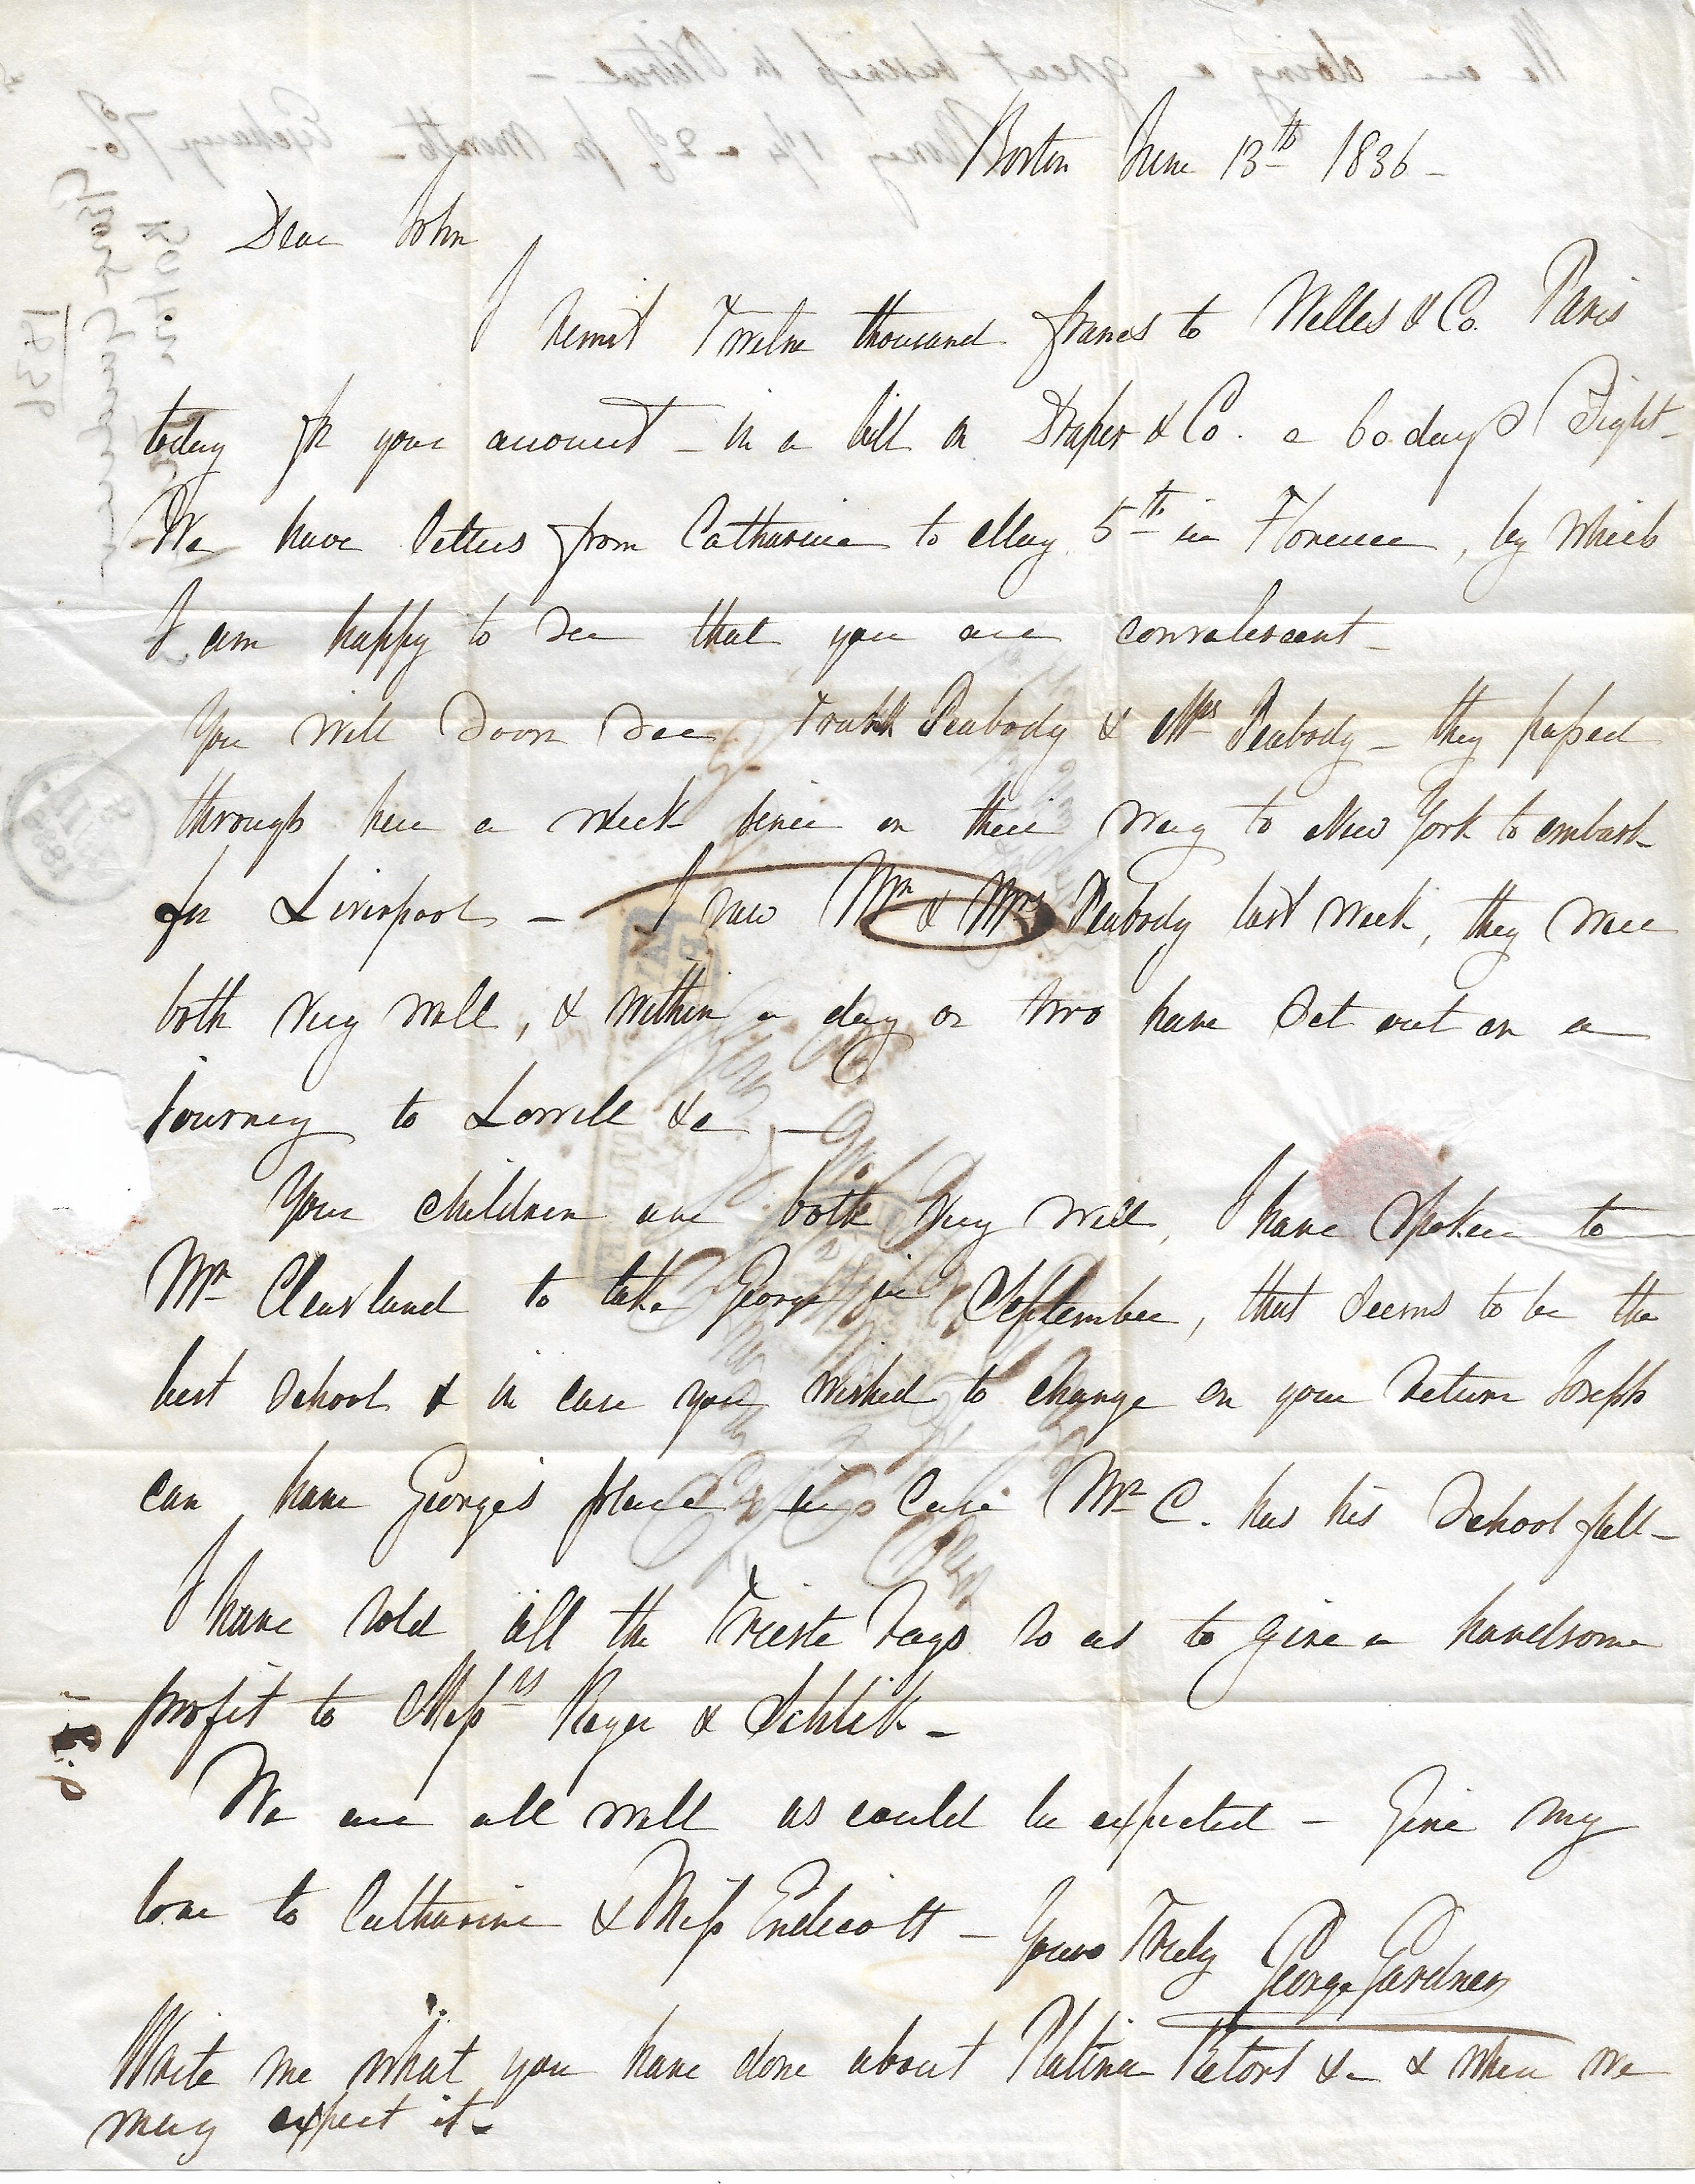 Boston June 13th 1836 -
Dear John
I remit Twelve thousand francs to Welles & Co. Paris
today for your account - in a bill on Draper & Co. a 60 days Sight -
We have letters from Catharine to May 5th in Florence, by which
I am happy to see that you are convalescent -
You will soon see Frank Peabody & Mrs Peabody - they passed
through here a week since on their way to New York to embark
for Liverpool - I saw Mr & Mrs Peabody last week, they were
both very well, & within a day or two have set out on a
journey to Lowell &c -
Your children are both very well, I have spoken to
Mr Cleaveland to take George in September, that seems to be the
best school & in case you wished to change on your return Joseph
can have George's place in case Mr C. has his School full -
I have sold all the Trieste rags so as to give a handsome
profit to Messrs Reyer & Schlik -
We are all well as could be expected - Give my
love to Catharine & Miss Endicott - Yours Truly George Gardner
Write me what you have done about Platina Retort &c & when we
may expect it -